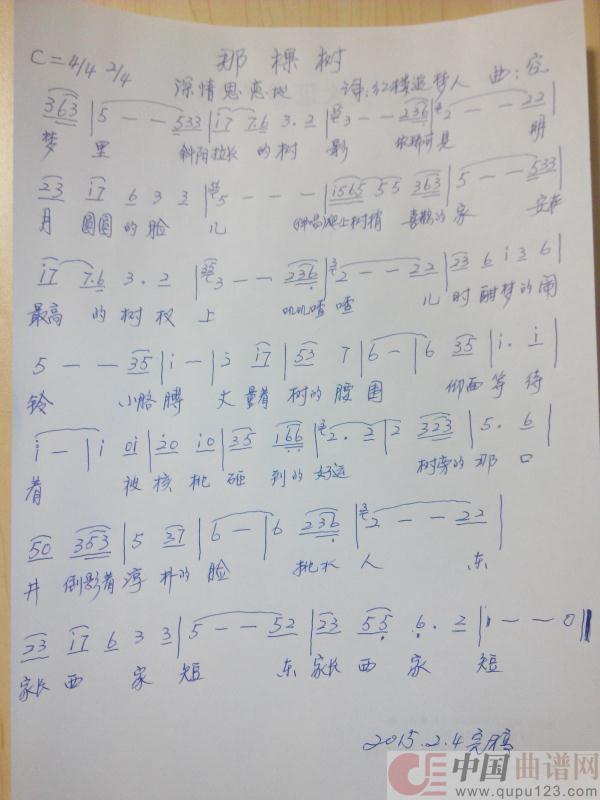 那棵树
C=4/4 2/4
深情思恋地 词:红楼追梦人 曲:容
363 | 5 - - 533 | i7 7.6 3.2 | 3 - - 236 | 2 - - 22 |
梦 里 斜阳拉长 的 树 影 依稀可见 明
23 i7 6 3 3 | 5 - - - | i565 55 363 | 5 - - 533 |
月 圆圆 的 脸 儿 爬上树梢 喜鹊的 家 安在
i7 7.6 3.2 | 3 - - 236 | 2 - - 22 | 23 6 i 3 6 |
最高 的 树杈 上 叽叽喳 喳 儿 时 酣梦的闹
5 - - 35 | i - | 3 i7 | 53 7 | 6 - | 6 35 | i. i |
铃 小胳 膊 丈 量着 树的 腰 围 仰面 等 待
i - | i 0i | 20 i0 | 35 i66 | 2. 2 | 2 323 | 5. 6 |
着 被 核 桃 砸 到的 好运 树旁的 那 口
50 353 | 5 37 | 6 - - | 6 236 | 2 - - 22 |
井 倒影着 淳 朴的 脸 挑水 人 东
23 i7 6 3 3 | 5 - - 52 | 23 55 6. 2 | 1 - - 0 ‖
家长 西 家 短 东 家长 西 家 短
2015.2.4完稿
中国曲谱网
www.qupu123.com